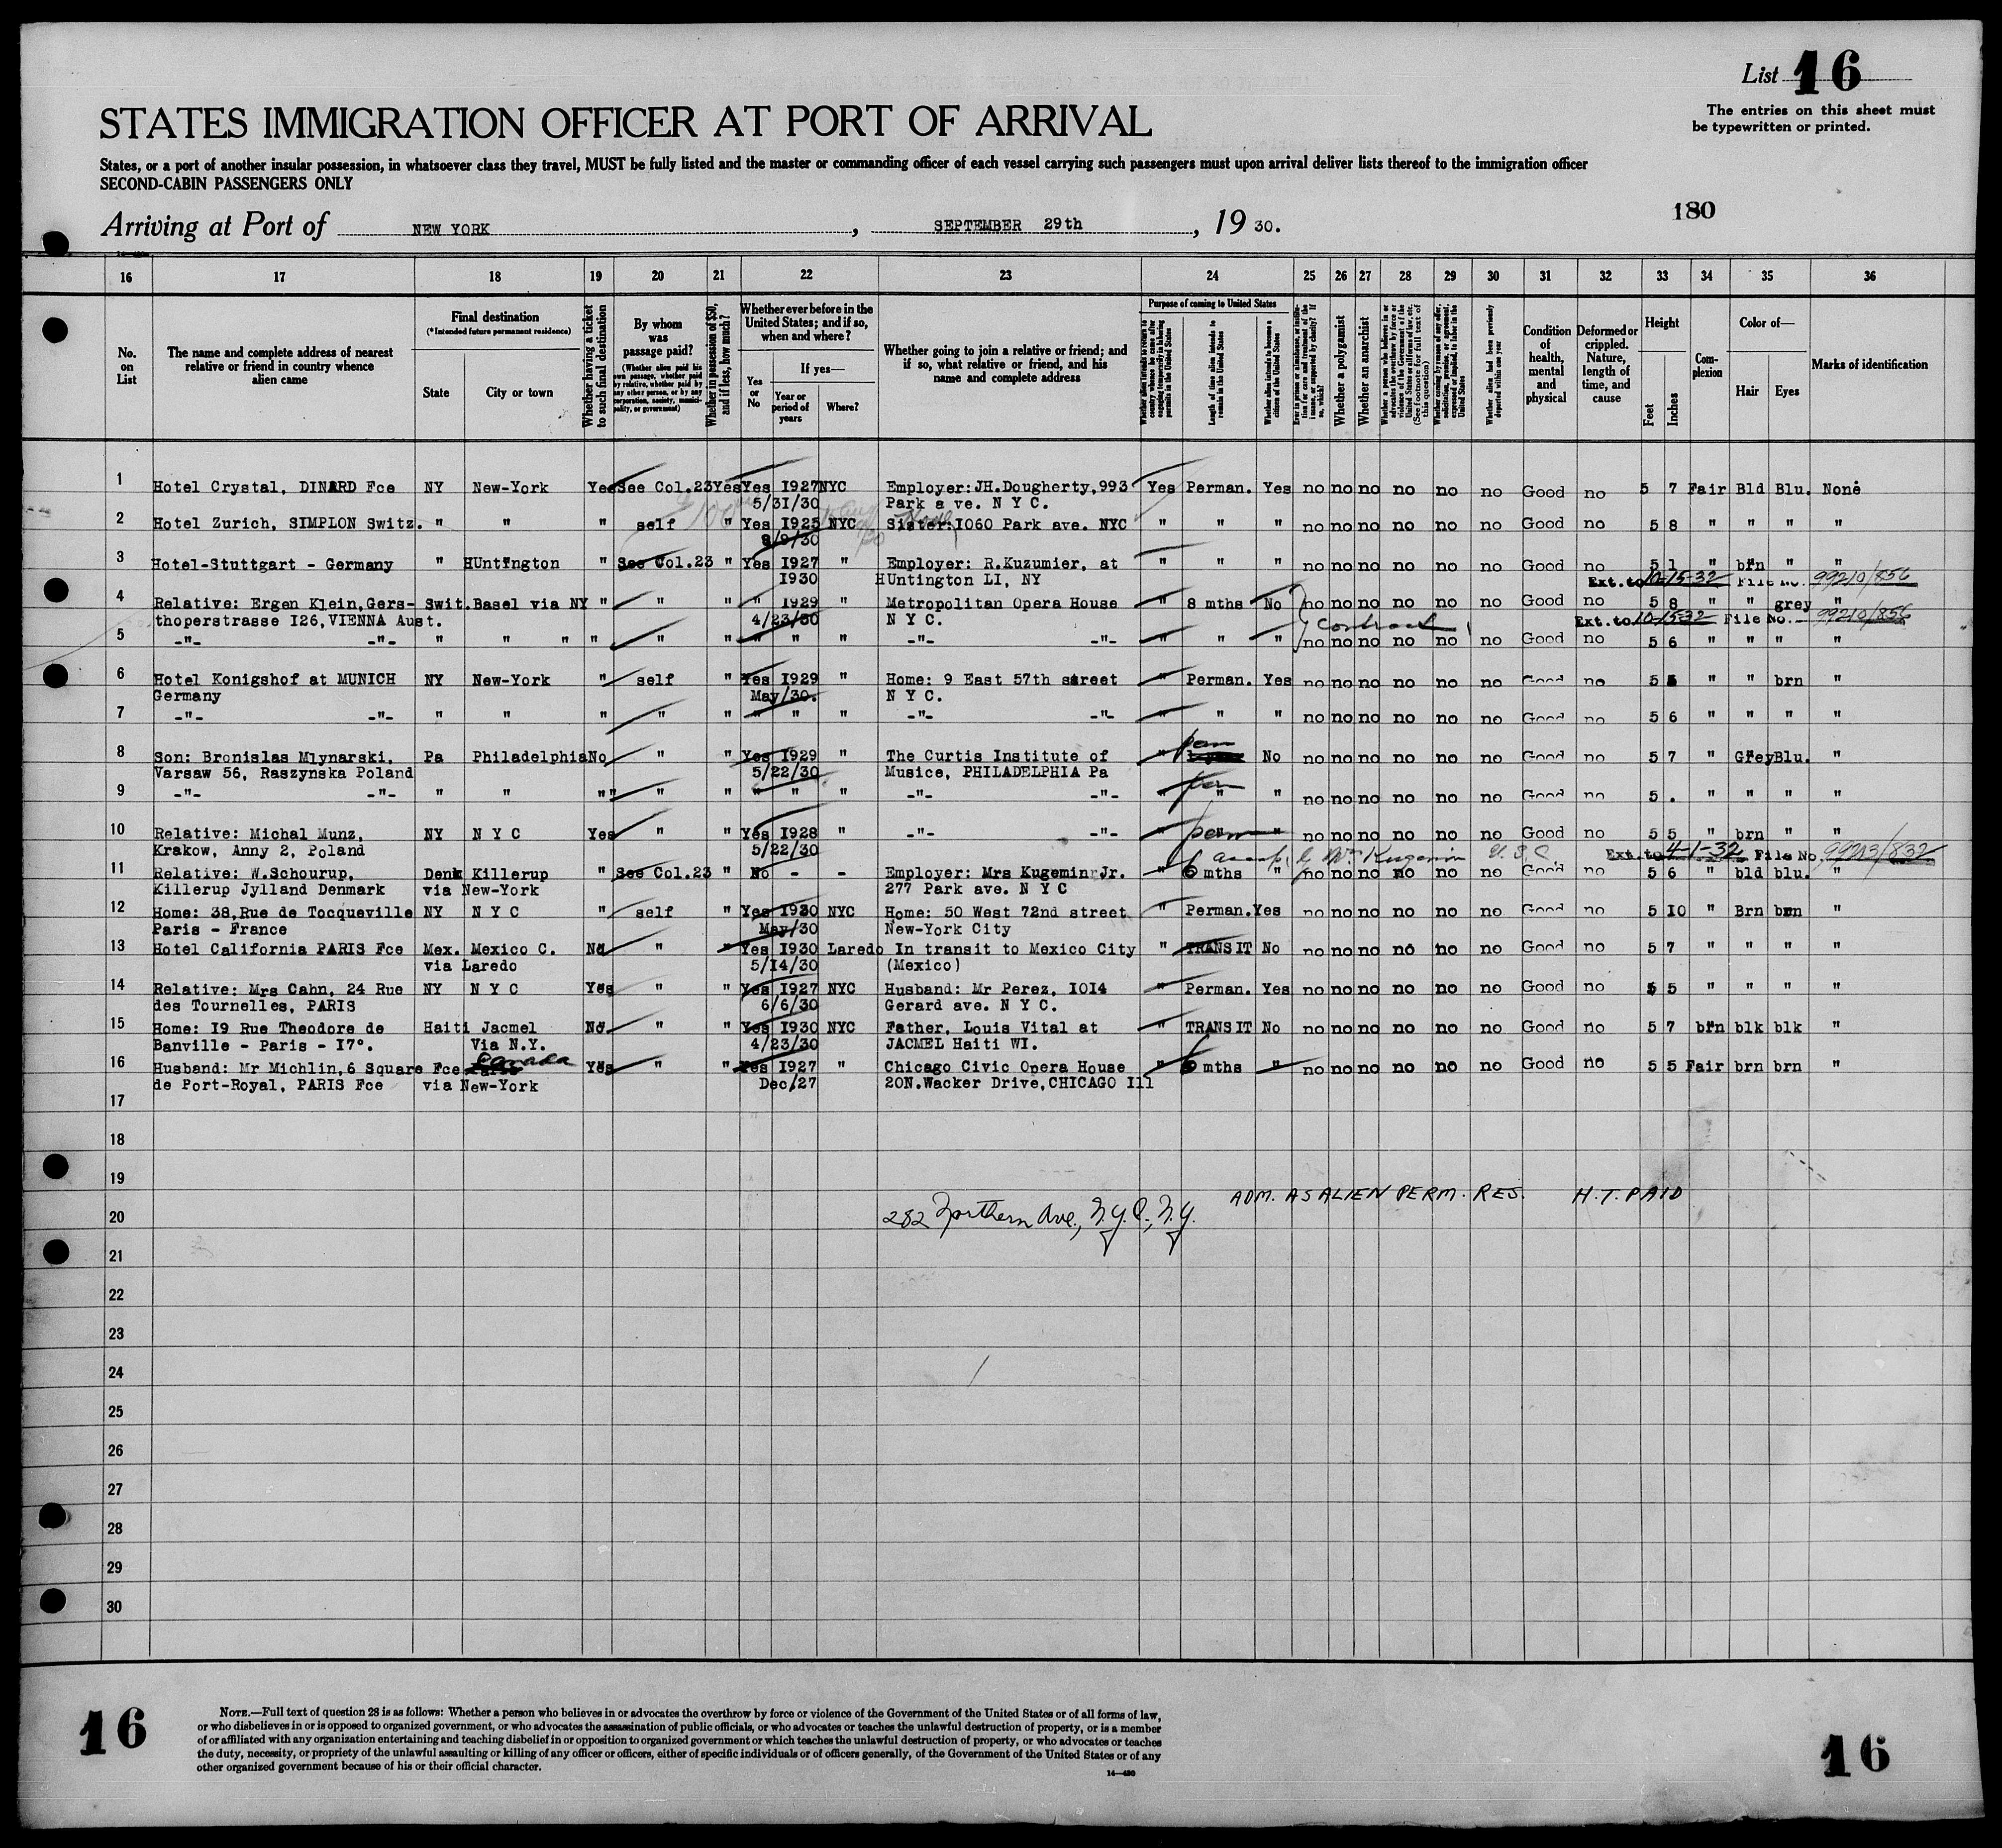 List 16
The entries on this sheet must
be typewritten or printed.
STATES IMMIGRATION OFFICER AT PORT OF ARRIVAL
States, or a port of another insular possession, in whatsoever class they travel, MUST be fully listed and the master or commanding officer of each vessel carrying such passengers must upon arrival deliver lists thereof to the immigration officer
SECOND-CABIN PASSENGERS ONLY
180
Arriving at Port of NEW YORK , SEPTEMBER 29th , 19 30.
16 17 18 19 20 21 22 23 24 25 26 27 28 29 30 31 32 33 34 35 36
No. on List
The name and complete address of nearest relative or friend in country whence alien came
Final destination
(*Intended future permanent residence)
State
City or town
Whether having a ticket to such final destination
By whom was passage paid?
(Whether alien paid his own passage, whether paid by relative, whether paid by any other person, or by any corporation, society, municipality, or government)
Whether in possession of $50, and if less, how much?
Whether ever before in the United States; and if so, when and where?
Yes or No
If yes—
Year or period of years
Where?
Whether going to join a relative or friend; and if so, what relative or friend, and his name and complete address
Purpose of coming to United States
Whether alien intends to return to country whence he came after engaging temporarily in laboring pursuits in the United States
Length of time alien intends to remain in the United States
Whether alien intends to become a citizen of the United States
Whether a polygamist
Whether an anarchist
Whether alien had been previously deported within one year
Condition of health, mental and physical
Deformed or crippled. Nature, length of time, and cause
Height
Feet
Inches
Complexion
Color of—
Hair
Eyes
Marks of identification
1 Hotel Crystal, DINARD Fce NY New-York Yes See Col.23 Yes Yes 1927 NYC Employer: JH.Dougherty,993 Yes Perman. Yes no no no no no no Good no 5 7 Fair Bld Blu. None
5/31/30 Park a ve. N Y C.
2 Hotel Zurich, SIMPLON Switz. " " " self " Yes 1925 NYC Sister: 1060 Park ave. NYC " " " no no no no no no Good no 5 8 " " " "
9/9/30
3 Hotel-Stuttgart - Germany " HUntington " See Col.23 " Yes 1927 " Employer: R.Kuzumier, at " " " no no no no no no Good no 5 1 " brn " "
1930 HUntington LI, NY Ext. to 10-15-32 File No. 99210/856
4 Relative: Ergen Klein,Gers- Swit. Basel via NY " " " " 1929 " Metropolitan Opera House " 8 mths No no no no no no no Good no 5 8 " " grey "
thoperstrasse I26,VIENNA Aust. 4/23/30 N Y C. Contract Ext. to 10-15-32 File No. 99210/856
5 -"- -"- " " " " " " " " " -"- -"- " " " no no no no no no Good no 5 6 " " " "
6 Hotel Konigshof at MUNICH NY New-York " self " Yes 1929 " Home: 9 East 57th street " Perman. Yes no no no no no no Good no 5 5 " " brn "
Germany May/30. N Y C.
7 -"- -"- " " " " " " " " -"- -"- " " " no no no no no no Good no 5 6 " " " "
8 Son: Bronislas Mlynarski, Pa Philadelphia No " " Yes 1929 " The Curtis Institute of " perm No no no no no no no Good no 5 7 " Grey Blu. "
Varsaw 56, Raszynska Poland 5/22/30 Musice, PHILADELPHIA Pa
9 -"- -"- " " " " " " " " -"- -"- " perm " " no no no no no no Good no 5 . " " " "
10 Relative: Michal Munz, NY N Y C Yes " " Yes 1928 " -"- -"- " perm " no no no no no no Good no 5 5 " brn " "
Krakow, Anny 2, Poland 5/22/30 Ext. to 4-1-32 File No. 99213/832
11 Relative: W.Schourup, Denk Killerup " See Col.23 " No - - Employer: Mrs Kugemin Jr. " 6 mths " no no no no no no Good no 5 6 " bld blu. "
Killerup Jylland Denmark via New-York 277 Park ave. N Y C
12 Home: 38,Rue de Tocqueville NY N Y C " self " Yes 1930 NYC Home: 50 West 72nd street " Perman. Yes no no no no no no Good no 5 10 " Brn brn "
Paris - France May/30 New-York City
13 Hotel California PARIS Fce Mex. Mexico C. No " " Yes 1930 Laredo In transit to Mexico City " TRANSIT No no no no no no no Good no 5 7 " " " "
via Laredo 5/14/30 (Mexico)
14 Relative: Mrs Cahn, 24 Rue NY N Y C Yes " " Yes 1927 NYC Husband: Mr Perez, 1014 " Perman. Yes no no no no no no Good no 5 5 " " " "
des Tournelles, PARIS 6/6/30 Gerard ave. N Y C.
15 Home: 19 Rue Theodore de Haiti Jacmel No. " " Yes 1930 NYC Father, Louis Vital at " TRANSIT No no no no no no no Good no 5 7 brn blk blk "
Banville - Paris - 17°. Via N.Y. 4/23/30 JACMEL Haiti WI.
16 Husband: Mr Michlin,6 Square Fce Paris Canada Yes " " Yes 1927 " Chicago Civic Opera House " 6 mths " no no no no no no Good no 5 5 Fair brn brn "
de Port-Royal, PARIS Fce via New-York Dec/27 20N.Wacker Drive,CHICAGO Ill
17
18
19
ADM. AS ALIEN PERM. RES. H.T. PAID
20 282 Northern Ave., N.Y.C., N.Y.
21
22
23
24
25
26
27
28
29
30
16
NOTE.—Full text of question 28 is as follows: Whether a person who believes in or advocates the overthrow by force or violence of the Government of the United States or of all forms of law,
or who disbelieves in or is opposed to organized government, or who advocates the assassination of public officials, or who advocates or teaches the unlawful destruction of property, or is a member
of or affiliated with any organization entertaining and teaching disbelief in or opposition to organized government or which teaches the unlawful destruction of property, or who advocates or teaches
the duty, necessity, or propriety of the unlawful assaulting or killing of any officer or officers, either of specific individuals or of officers generally, of the Government of the United States or of any
other organized government because of his or their official character.
14—430
16